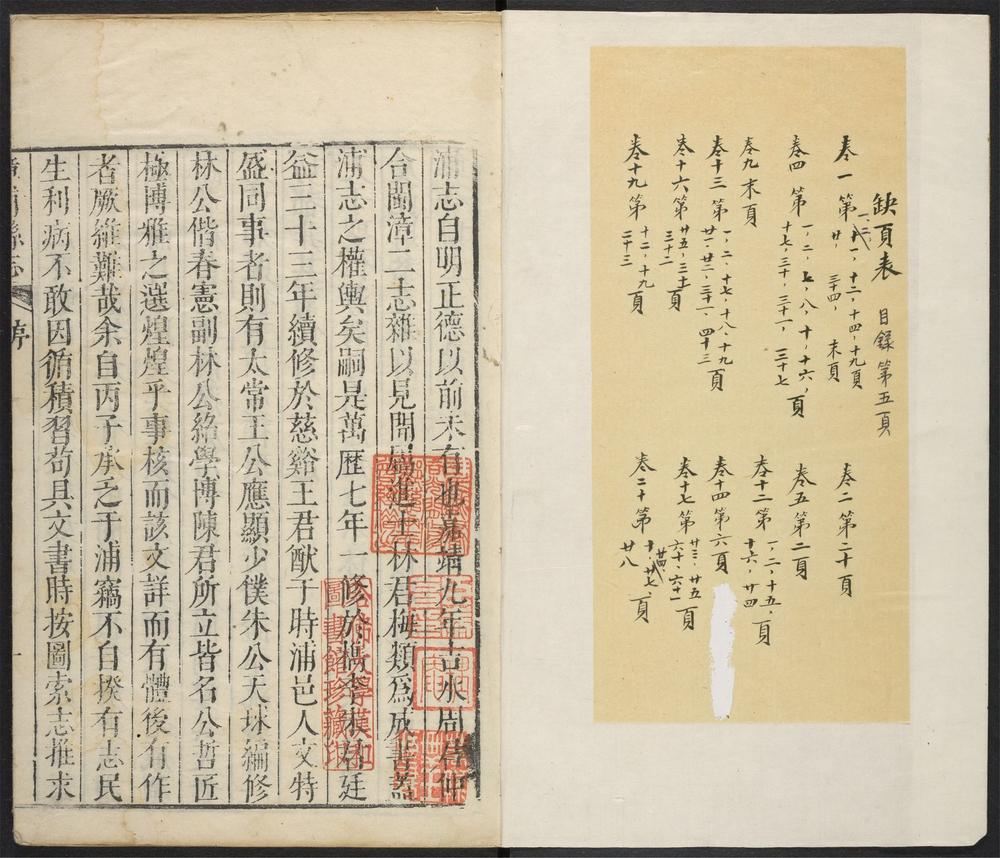 缺頁表 目錄第五頁
卷一 第一、二、十一、十二、十四、十九頁
廿、三十四、末頁
卷四 第一、二、七、八、十、十六、頁
十七、三十、三十一、三十七
卷九 末頁
卷十三 第一、二、十七、十八、十九頁
廿一、廿二、三十一、四十三
卷十六 第廿五、三十頁
三十二
卷十九 第十二、十九頁
二十三
卷二 第二十頁
卷五 第二頁
卷十二 第一、二、十五、頁
十六、廿四
卷十四 第六頁
卷十七 第廿三、廿五頁
六十、六十一
卷二十 第十、廿七、頁
廿八
浦志自明正德以前未有也嘉靖九年吉水周君仲
合閩漳二志雜以見聞屬進士林君梅類爲成書蓋
浦志之權輿矣嗣是萬歷七年一修於檇李朱君廷
益三十三年續修於慈谿王君猷于時浦邑人文特
盛同事者則有太常王公應顯少僕朱公天球編修
林公偕春憲副林公綸學博陳君所立皆名公哲匠
極博雅之選煌煌乎事核而該文詳而有體後有作
者厥維難哉余自丙子承乏于浦竊不自揆有志民
生利病不敢因循積習苟具文書時按圖索志推求
漳浦縣志 序 一
哈佛大學漢和
圖書館珍藏印